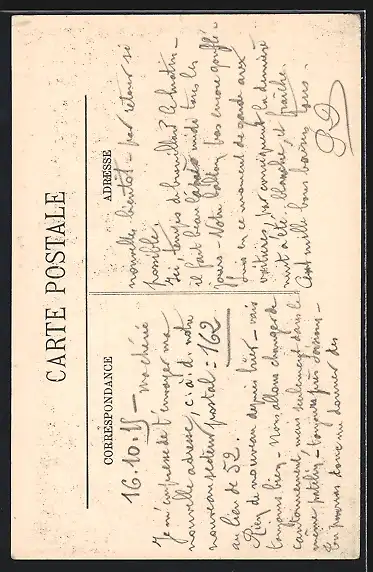 CARTE POSTALE
CORRESPONDANCE
16.10.15 — ma chérie
Je m'empresse de t'envoyer ma
nouvelle adresse, c. à d. notre
nouveau secteur postal = 162
au lieu de 52.
Rien de nouveau depuis hier — vais
toujours bien — Nous allons changer de
cantonnement mais seulement dans le
même patelin — toujours près Soissons —
Tu pourras donc me donner des
ADRESSE
nouvelles bientôt — par retour si
possible.
Ici temps de brouillard le matin —
il fait beau l'après midi tous les
jours — Notre ballon pas encore gonflé —
Suis en ce moment de garde aux
voitures, par conséquent la dernière
nuit a été blanche, et fraîche.
mille bons baisers tous —